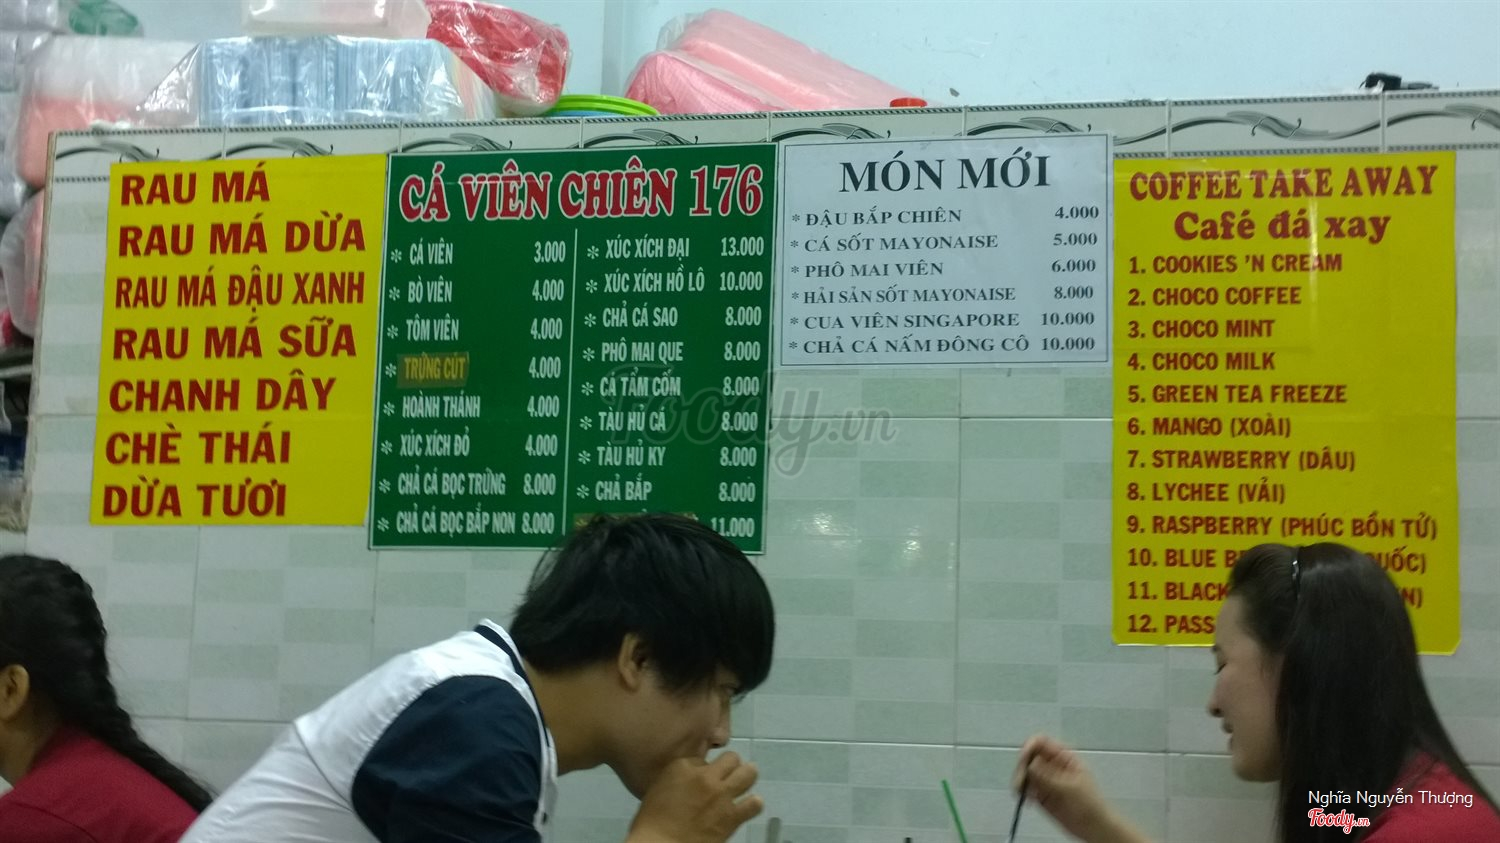 RAU MÁ
RAU MÁ DỪA
RAU MÁ ĐẬU XANH
RAU MÁ SỮA
CHANH DÂY
CHÈ THÁI
DỪA TƯƠI
CÁ VIÊN CHIÊN 176
* CÁ VIÊN 3.000
* BÒ VIÊN 4.000
* TÔM VIÊN 4.000
* TRỨNG CÚT 4.000
* HOÀNH THÁNH 4.000
* XÚC XÍCH ĐỎ 4.000
* CHẢ CÁ BỌC TRỨNG 8.000
* CHẢ CÁ BỌC BẮP NON 8.000
* XÚC XÍCH ĐẠI 13.000
* XÚC XÍCH HỒ LÔ 10.000
* CHẢ CÁ SAO 8.000
* PHÔ MAI QUE 8.000
* CÁ TẨM CỐM 8.000
* TÀU HỦ CÁ 8.000
* TÀU HỦ KY 8.000
* CHẢ BẮP 8.000
11.000
MÓN MỚI
* ĐẬU BẮP CHIÊN 4.000
* CÁ SỐT MAYONAISE 5.000
* PHÔ MAI VIÊN 6.000
* HẢI SẢN SỐT MAYONAISE 8.000
* CUA VIÊN SINGAPORE 10.000
* CHẢ CÁ NẤM ĐÔNG CÔ 10.000
COFFEE TAKE AWAY
Café đá xay
1. COOKIES 'N CREAM
2. CHOCO COFFEE
3. CHOCO MINT
4. CHOCO MILK
5. GREEN TEA FREEZE
6. MANGO (XOÀI)
7. STRAWBERRY (DÂU)
8. LYCHEE (VẢI)
9. RASPBERRY (PHÚC BỒN TỬ)
10. BLUE B UỐC)
11. BLACK N)
12. PASS
Foody.vn
Nghĩa Nguyễn Thượng
Foody.vn